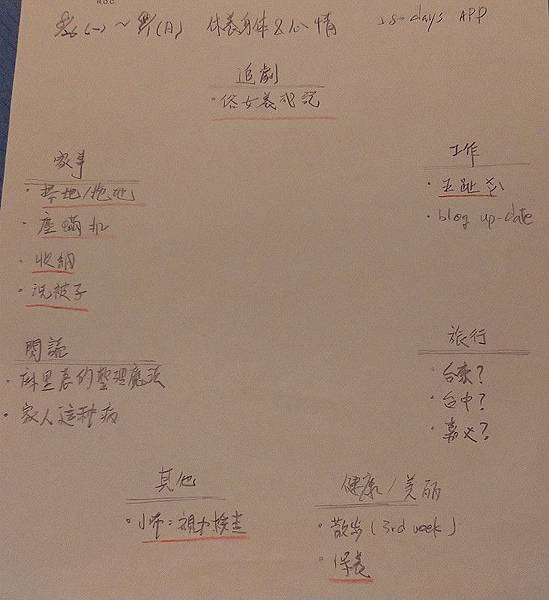 R.O.C.
(一) ~ (日) 休養身体 & 心情 28-days APP
追劇
· 俗女養成記
家事
· 掃地/拖地
· 塵蟎机
· 收納
· 洗被子
工作
· 五趾
· blog up-date
閱讀
· 麻里惠的整理魔法
· 家人這种病
旅行
· 台東?
· 台中?
· 嘉义?
其他
· 小布: 視力檢查
健康 / 美丽
· 散步 (3rd week)
· 保養